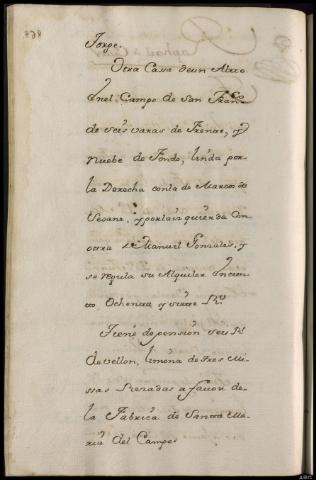 878
Jorge.
Otra Casa de un Alto
en el Campo de San Franco
de seis varas de Frente, y
Nuebe de Fondo, linda por
la Derecha con la de Marcos de
Seoane, y por la izquierda con
otra de Manuel Gonzales, y
se regula su Alquiler en cien
to Ochenta y siete Rs
Tiene de pension seis Rs
de vellon, limosna de tres Mi
sas Rezadas a favor de
la Fabrica de Santa Ma
ria del Campo